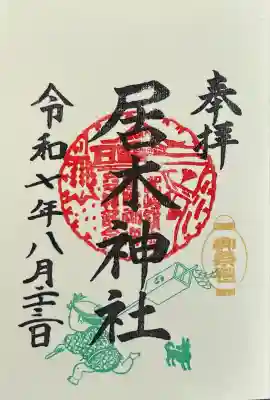 奉拝
居木神社
令和七年八月二十三日